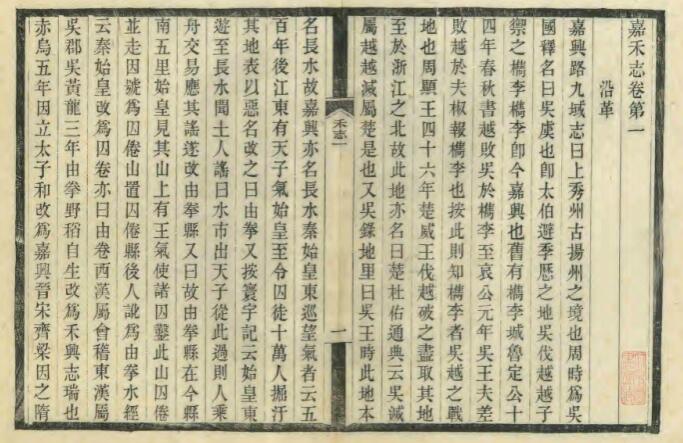 嘉禾志卷第一
沿革
嘉興路九域志曰上秀州古揚州之境也周時爲吳
國釋名曰吳虞也卽太伯避季歷之地吳伐越越子
禦之檇李檇李卽今嘉興也舊有檇李城魯定公十
四年春秋書越敗吳於檇李至哀公元年吳王夫差
敗越於夫椒報檇李也按此則知檇李者吳越之戰
地也周顯王四十六年楚威王伐越破之盡取其地
至於浙江之北故此地亦名曰楚杜佑通典云吳滅
屬越越滅屬楚是也又吳錄地里曰吳王時此地本
禾志一
一
名長水故嘉興亦名長水秦始皇東巡望氣者云五
百年後江東有天子氣始皇至令囚徒十萬人掘汙
其地表以惡名改之曰由拳又按寰宇記云始皇東
遊至長水聞土人謠曰水市出天子從此過則人乘
舟交易應其謠遂改由拳縣又曰故由拳縣在今縣
南五里始皇見其山上有王氣使諸囚鑿此山囚倦
並走因號爲囚倦山置囚倦縣後人訛爲由拳水經
云秦始皇改爲囚卷亦曰由卷西漢屬會稽東漢屬
吳郡吳黃龍三年由拳野稻自生改爲禾興志瑞也
赤烏五年因立太子和改爲嘉興晉宋齊梁因之隋